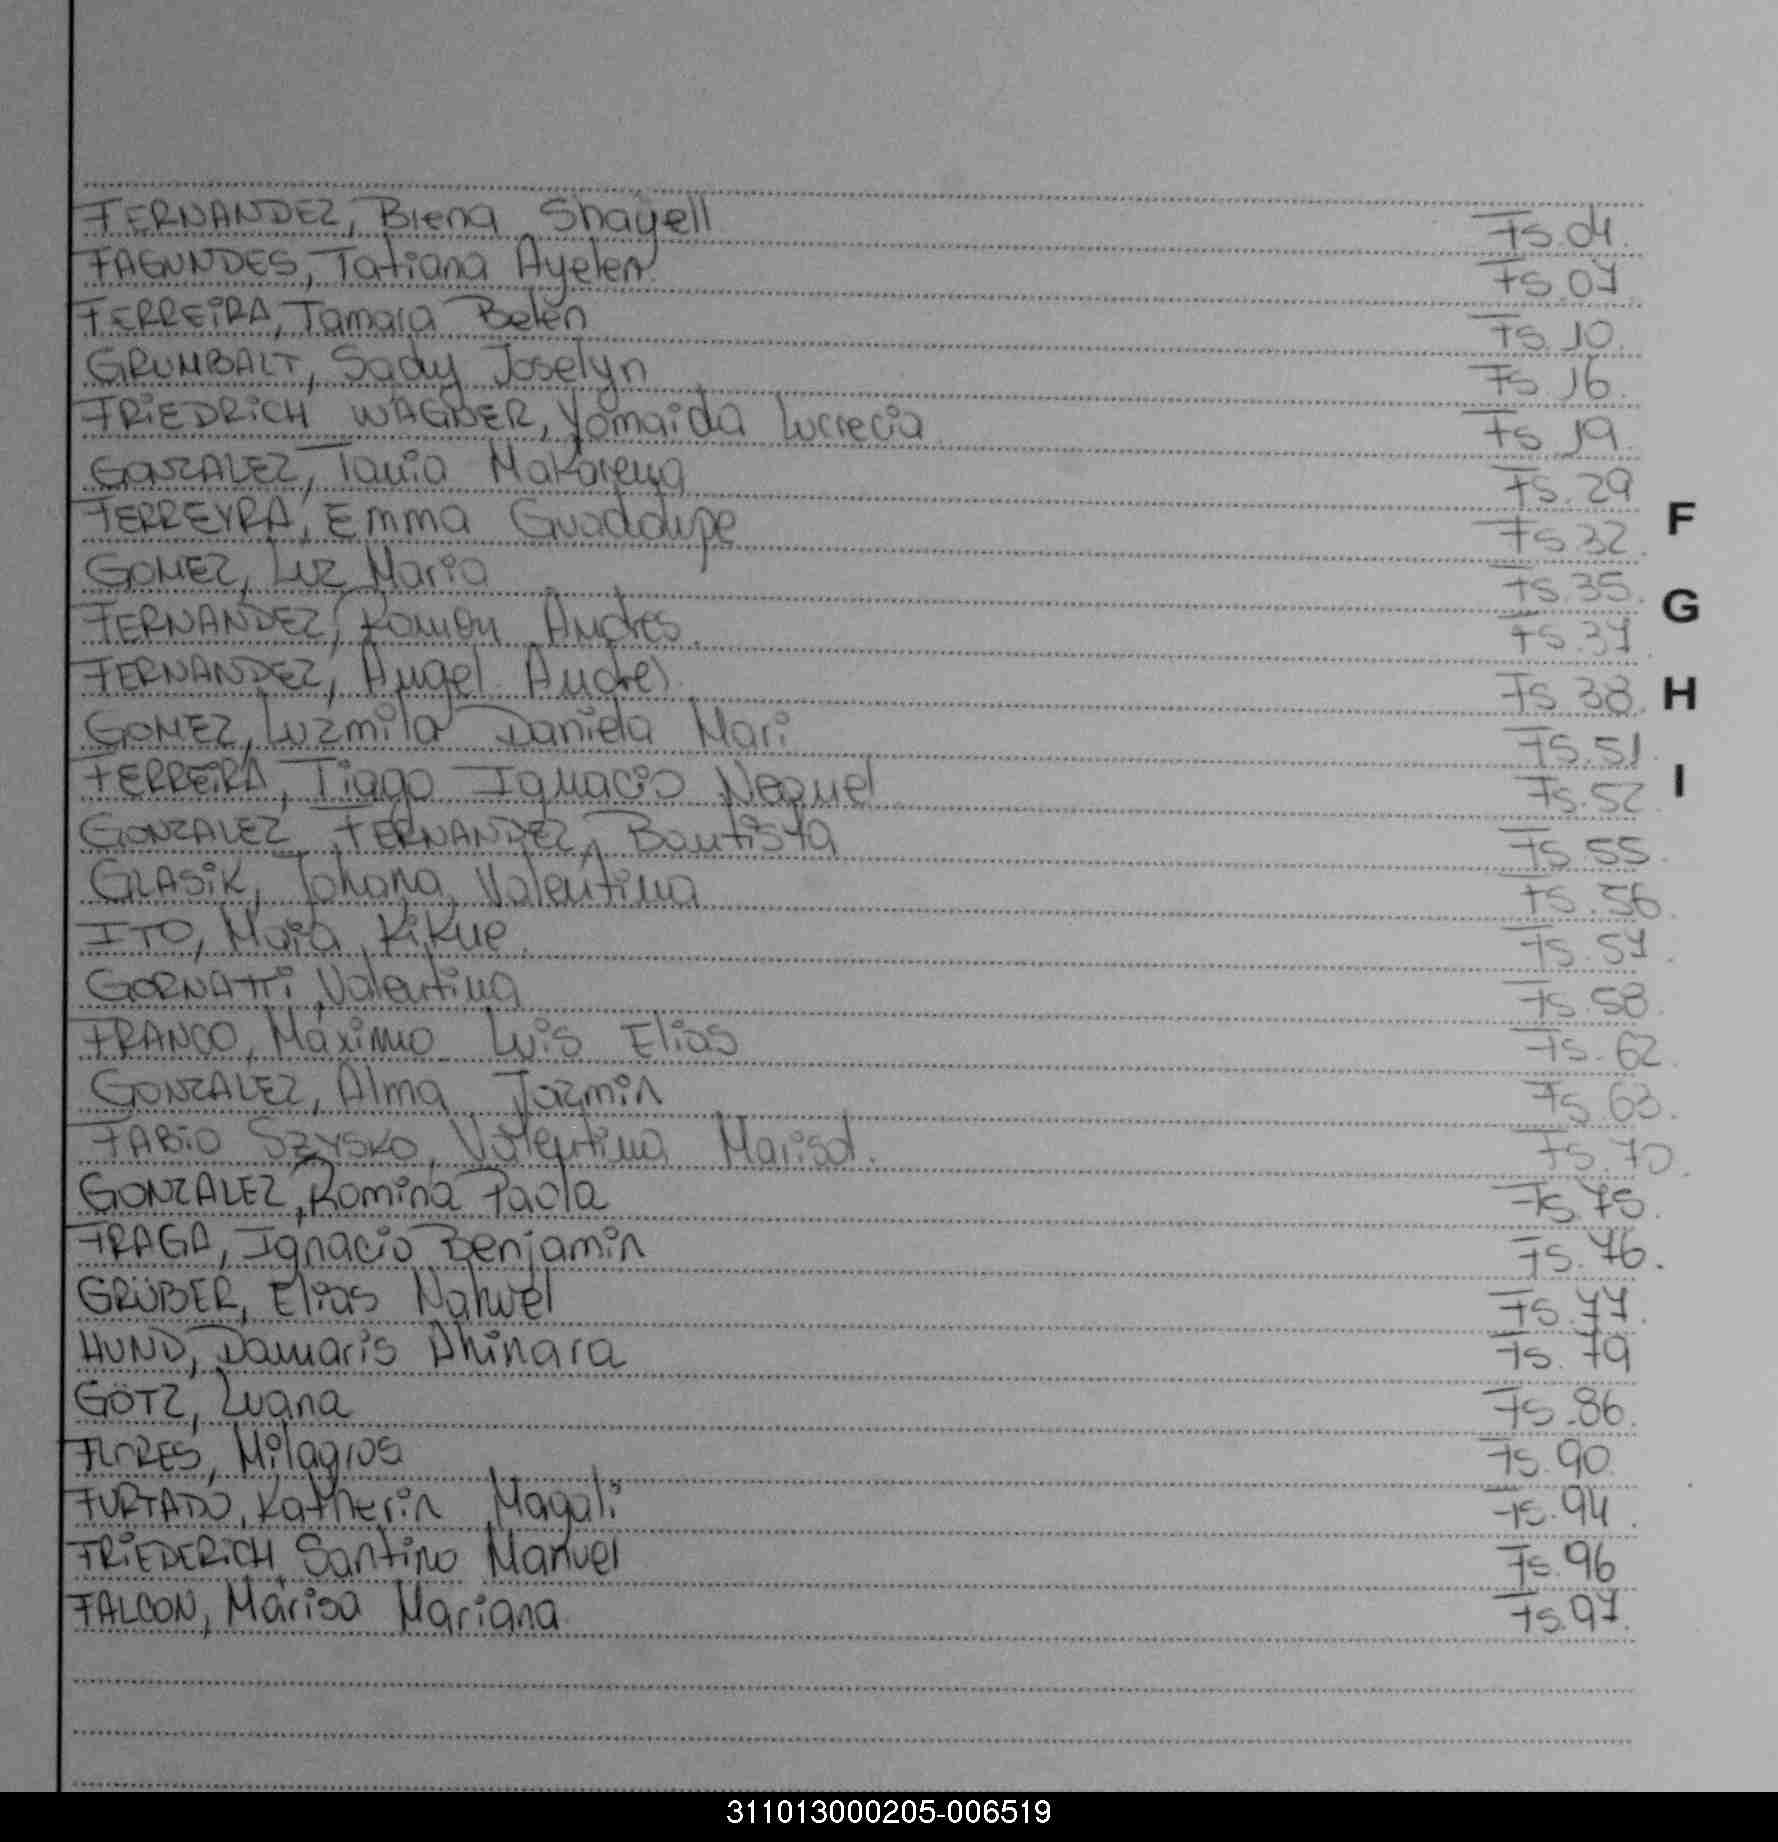 FERNANDEZ, Briena Shayell Fs.04.
FAGUNDES, Tatiana Ayelen. Fs.07.
FERREIRA, Tamara Belén Fs.10.
GRUMBALT, Sady Joselyn Fs.16.
FRIEDRICH WAGNER, Yomaida Lucrecia Fs.19.
GONZALEZ, Tania Makarena Fs.29
FERREYRA, Emma Guadalupe Fs.32.
F
GOMEZ, Luz Maria Fs.35.
G
FERNANDEZ, Ramon Andres. Fs.37.
FERNANDEZ, Angel Andres. Fs.38.
H
GOMEZ, Luzmila Daniela Mari Fs.51.
FERREIRA, Tiago Ignacio Nequel Fs.52.
I
GONZALEZ FERNANDEZ, Bautista Fs.55.
GLASIK, Johana Valentina Fs.56.
ITO, Maia Kikue. Fs.57.
GORNATTI, Valentina Fs.58.
FRANCO, Máximo Luis Elias Fs.62.
GONZALEZ, Alma Jazmin Fs.63.
FABIO SZYSKO, Valentina Marisol. Fs.70.
GONZALEZ, Romina Paola Fs.75.
FRAGA, Ignacio Benjamin Fs.76.
GRÜBER, Elias Nahuel Fs.77.
HUND, Damaris Ahinara Fs.79
GÖTZ, Luana Fs.86.
FLORES, Milagros Fs.90.
FURTADO, Katherin Magali Fs.94.
FRIEDERICH, Santino Manuel Fs.96
FALCON, Marisa Mariana. Fs.97.
311013000205-006519